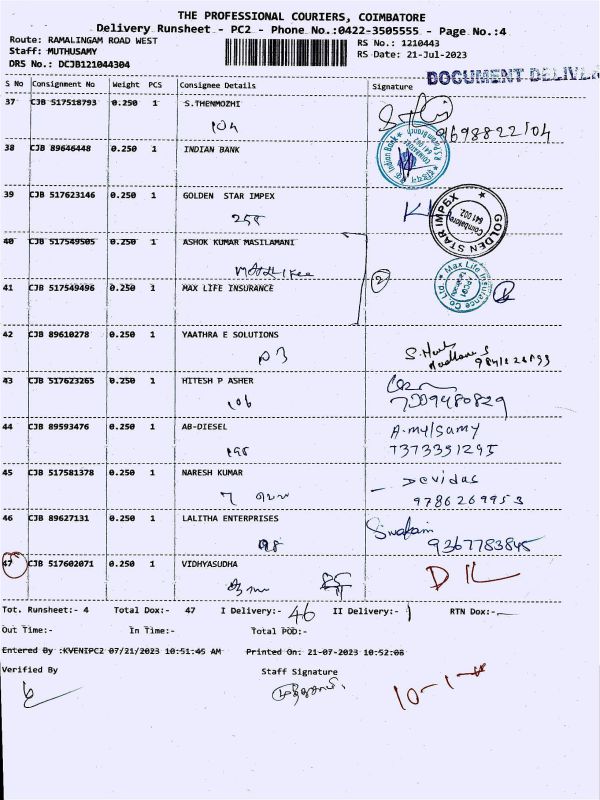 THE PROFESSIONAL COURIERS, COIMBATORE
Delivery Runsheet - PC2 - Phone No.:0422-3505555 - Page No.:4
Route: RAMALINGAM ROAD WEST
RS No.: 1210443
Staff: MUTHUSAMY
RS Date: 21-Jul-2023
DRS No.: DCJB121044304
DOCUMENT DELIVE
S No Consignment No Weight PCS Consignee Details Signature
37 CJB 517518793 0.250 1 S.THENMOZHI
104
9698822104
38 CJB 89646448 0.250 1 INDIAN BANK
Indian Bank
641 002
39 CJB 517623146 0.250 1 GOLDEN STAR IMPEX
GOLDEN STAR IMPEX
Coimbatore
641 002.
40 CJB 517549505 0.250 1 ASHOK KUMAR MASILAMANI
2
Max Life Insurance Co Ltd.
41 CJB 517549496 0.250 1 MAX LIFE INSURANCE
42 CJB 89610278 0.250 1 YAATHRA E SOLUTIONS
43 CJB 517623265 0.250 1 HITESH P ASHER
106
7009480829
44 CJB 89593476 0.250 1 AB-DIESEL
198
7373391295
45 CJB 517581378 0.250 1 NARESH KUMAR
Devidas
9786269953
46 CJB 89627131 0.250 1 LALITHA ENTERPRISES
98
9367783845
47 CJB 517602071 0.250 1 VIDHYASUDHA
D L
Tot. Runsheet:- 4 Total Dox:- 47 I Delivery:- 46 II Delivery:- 1 RTN Dox:-
Out Time:- In Time:- Total POD:-
Entered By :KVENIPC2 07/21/2023 10:51:45 AM Printed On: 21-07-2023 10:52:08
Verified By Staff Signature